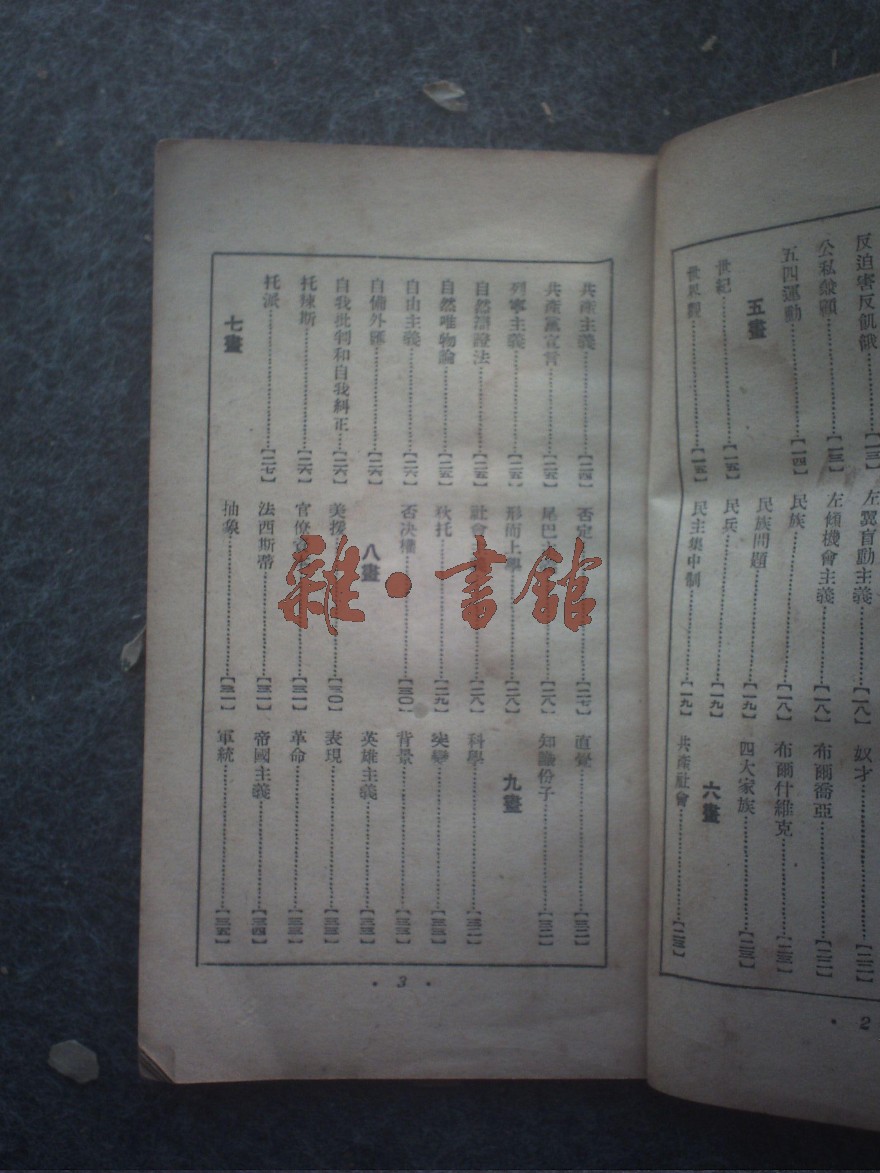 反迫害反飢餓……【一三】
公私兼顧……【一三】
五四運動……【一四】
五畫
世紀……【一五】
世界觀……【一五】
左翼盲動主義……【一八】
左傾機會主義……【一八】
民族……【一八】
民族問題……【一九】
民兵……【一九】
民主集中制……【一九】
奴才……【二二】
布爾喬亞……【二二】
布爾什維克……【二三】
四大家族……【二三】
六畫
共產社會……【二三】
· 2
共產主義……【二四】
共產黨宣言……【二五】
列寧主義……【二五】
自然辯證法……【二五】
自然唯物論……【二五】
自由主義……【二六】
自備外匯……【二六】
自我批判和自我糾正……【二六】
托辣斯……【二六】
托派……【二七】
七畫
否定……【二七】
尾巴……【二八】
形而上學……【二八】
社會……【二八】
狄托……【二九】
否决權……【三〇】
八畫
美援……【三〇】
官僚……【三一】
法西斯蒂……【三一】
抽象……【三一】
直覺……【三二】
知識份子……【三二】
九畫
科學……【三二】
突變……【三三】
背景……【三三】
英雄主義……【三三】
表現……【三三】
革命……【三三】
帝國主義……【三四】
軍統……【三五】
· 3 ·
雜·書館